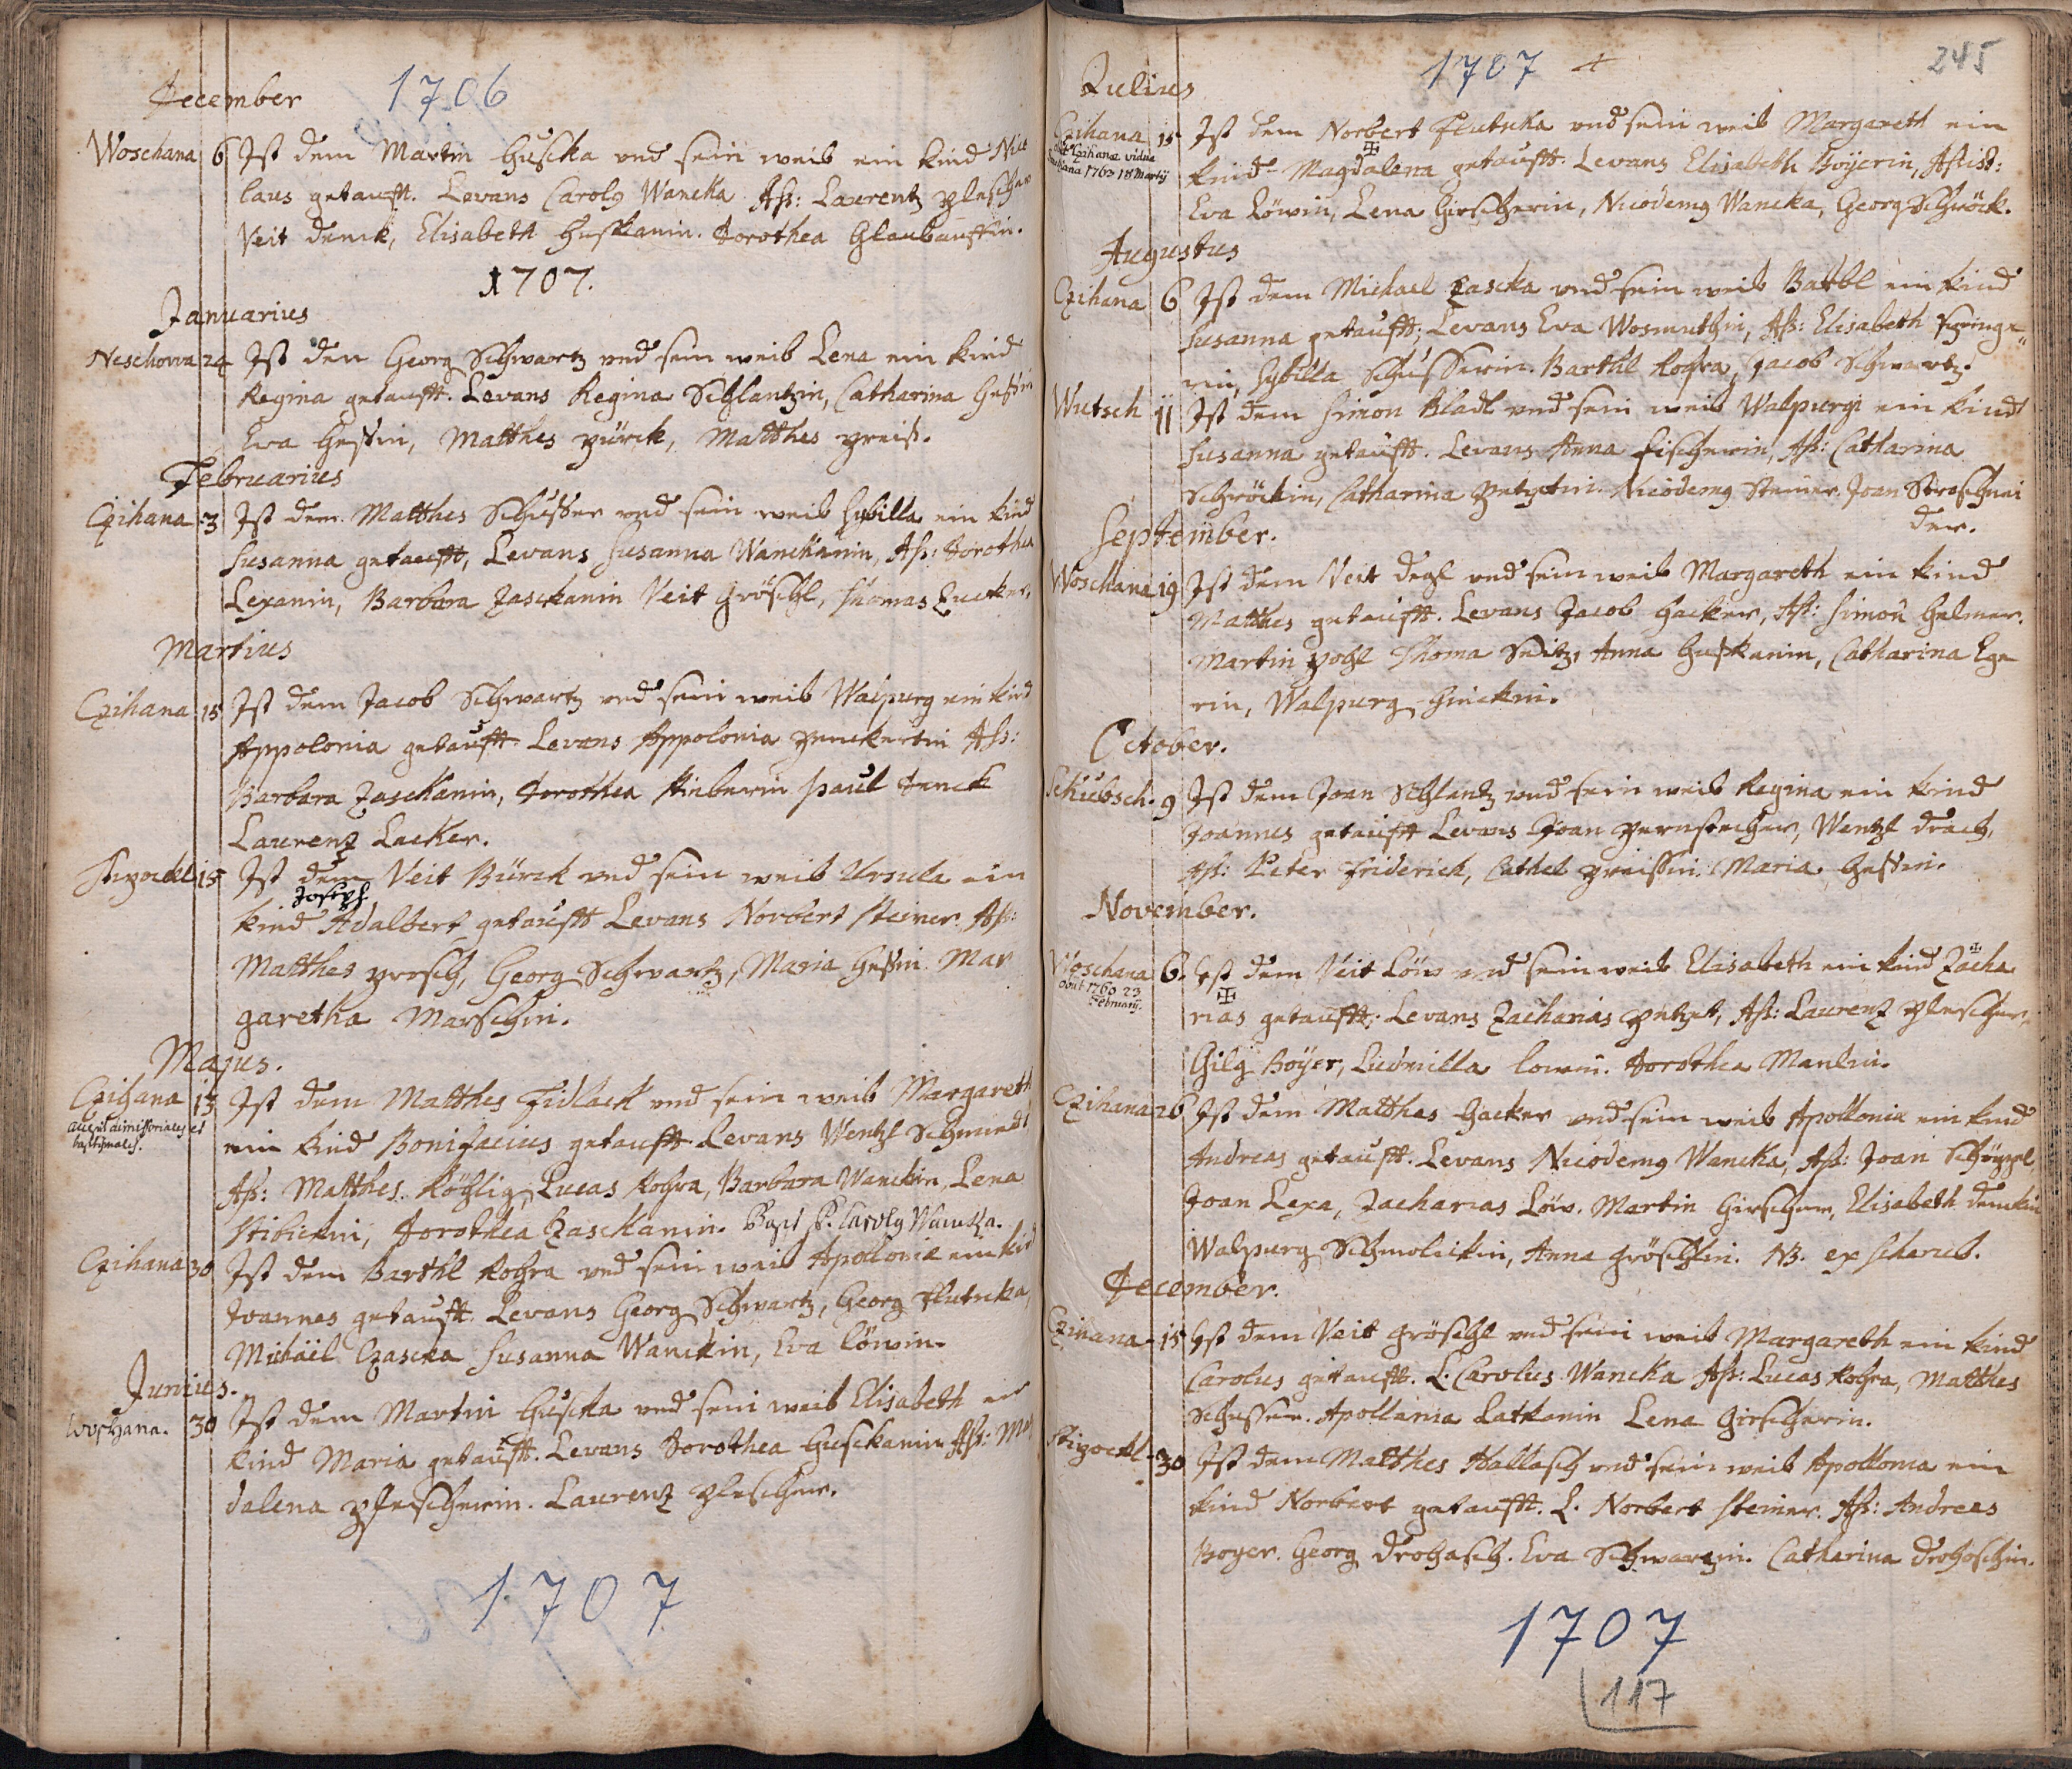 December 1706
Woschana 6 Ist dem Martin Huscka vnd sein weib ein kind Nico
laus getaufft. Levans Carolg Wancka Aß: Laurentz Plescher
Veit Denck, Elisabeth Huskanin. Dorothea Glaubauffin.
1707.
Januarius
Neschowa 24 Ist den Georg Schwartz vnd sein weib Lena ein kind
Regina getaufft. Levans Regina Schlantzin, Catharina Heßin
Eva Heßin, Matthes Pürck, Matthes Preiß.
Februarius
Czihana 3 Ist dem Matthes Schusser vnd sein weib Sybilla ein kind
Susanna getaufft, Levans Susanna Wanckanin, Aß: Dorothea
Lexanin, Barbara Zasckanin Veit Gröschl, Thomas Zucker.
Martius
Czihana 15 Ist dem Jacob Schwartz vnd sein weib Walpurg ein kind
Appolonia getaufft Levans Appolonia Penckertin Aß:
Barbara Zasckanin, Dorothea Stieberin Paul Denck
Laurenz Lacker.
15 Ist dem Veit Bürck vnd sein weib Ursula ein
Joseph
kind Adalbert getaufft Levans Norbert Steiner. Aß:
Matthes Prosch, Georg Schwartz, Maria Heßin Mar
garetha Marschin.
Majus.
Czihana 13 Ist dem Matthes Fidlack vnd sein weib Margareth
accepit dimissoriales et
baptismales.
ein kind Bonifacius getaufft Levans Wentzl Schmiedt
Aß: Matthes Köhlig, Lucas Rohra, Barbara Wanckin, Lena
Stibickin, Dorothea Czasckanin. Bapt P. Carolg Wancka.
Czihana 30 Ist dem Barthl Rohra vnd sein weib Apollonia ein kind
Joannes getaufft. Levans Georg Schwartz, Georg Flutzcka,
Michäel Czascka Susanna Wanckin, Eva Löwin.
Junius.
Woschana. 30 Ist dem Martin Huscka vnd sein weib Elisabeth ein
kind Maria getaufft. Levans Dorothea Husckanin Aß: Mag
dalena Plescherin. Laurenz Plescher.
1707
1707 245
Julius
Czihana 15 Ist dem Norbert Flutzcka vnd sein weib Margareth ein
obiit Czihanæ vidua
1763 18 Martij
kind Magdalena getaufft. Levans Elisabeth Boyerin, Aßist:
Eva Löwin, Lena Hirscherin, Nicodemg Wancka, Georg Schröck.
Augustus
Czihana 6 Ist dem Michael Zascka vnd sein weib Barbl ein kind
Susanna getaufft, Levans Eva Wosmuthin, Aß: Elisabeth Springe
rin, Sybilla Schusserin. Barthl Rohra, Jacob Schwartz.
Wutsch 11 Ist dem Simon Bladl vnd sein weib Walpurgi ein kind
Susanna getaufft. Levans Anna Fischerin, Aß: Catharina
Schröckin, Catharina Petzetin. Nicodemg Steiner Joan Stroschnei
der.
September.
Woschana 19 Ist dem Veit Degl vnd sein weib Margareth ein kind
Matthes getaufft. Levans Jacob Hacker, Aß: Simon Helmer.
Martin Pohl Thoma Seitz, Anna Huskanin, Catharina Ege
rin, Walpurg Hinckin.
October.
Schübsch. 9 Ist dem Joan Schlantz vnd sein weib Regina ein kind
Joannes getaufft Levans Joan Pernstecher, Wentzl Drach,
Aß: Peter Friderich, Cathel Preissin. Maria Hessin.
November.
Woschana 6. Ist dem Veit Löw vnd sein weib Elisabeth ein kind Zacha
obiit 1760 23
Februarij.
rias getaufft. Levans Zacharias Petzet, Aß: Laurenz Plescher,
Gilg Böyer, Ludmilla Lowin. Dorothea Manlin.
Czihana 26 Ist dem Matthes Hacker vnd sein weib Apollonia ein kind
Andreas getaufft. Levans Nicodemg Wancka, Aß: Joan Schöppel
Joan Lexa, Zacharias Löw. Martin Hirscher, Elisabeth Denckin
Walpurg Schmolickin, Anna Gröschlin. NB. ex Scharub.
December.
Czihana 15 Ist dem Veit Gröschl vnd sein weib Margareth ein kind
Carolus getaufft. L. Carolus Wancka Aß: Lucas Rohra, Matthes
Schusser. Apollonia Latkanin Lena Hirscherin.
30 Ist dem Matthes Hallasch vnd sein weib Apollonia ein
kind Norbert getaufft. L. Norbert Steiner. Aß: Andreas
Boyer. Georg Drohasch. Eva Schwartzin. Catharina Drohoschin.
1707
117